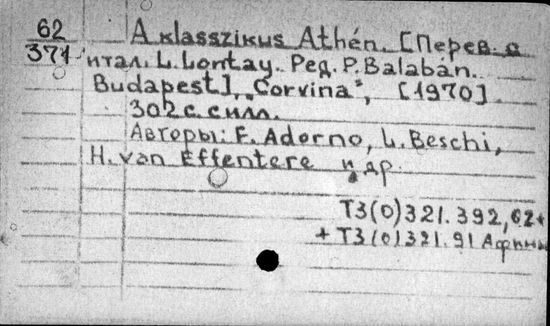 62
371
A klasszikus Athén. [Перев. с
итал. L. Lontay. Ред. P. Balabán.
Budapest], "Corvina", [1970].
302 с. с илл.
Авторы: F. Adorno, L. Beschi,
H. van Effenterre и др.
Т3(0)321.392,62+
+ Т3(0)321.91 Афины